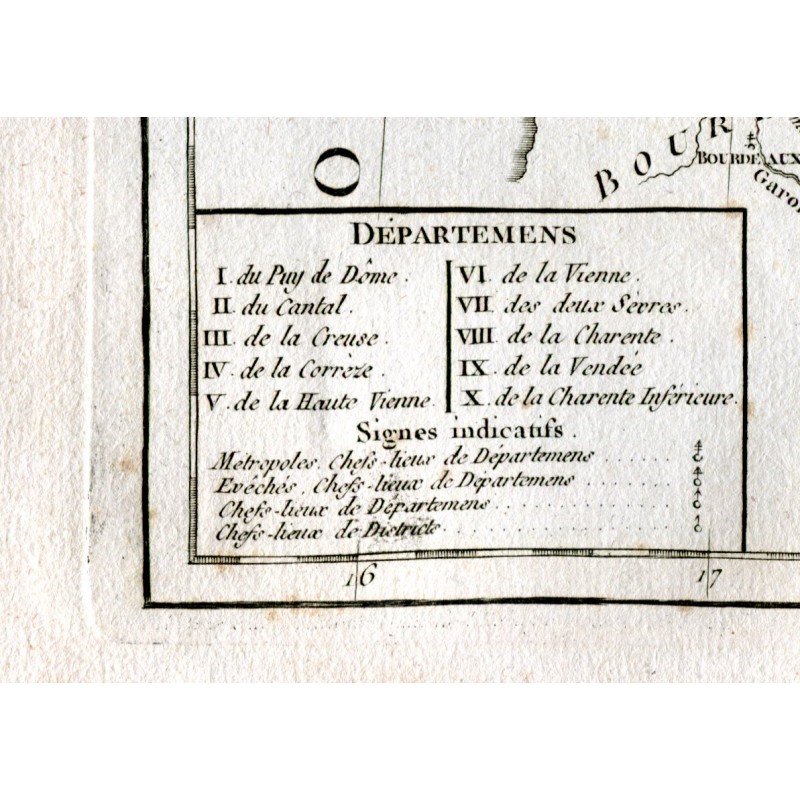 O
BOUR
BOURDEAUX
Garon
DÉPARTEMENS
I. du Puy de Dôme.
II. du Cantal.
III. de la Creuse.
IV. de la Corrèze.
V. de la Haute Vienne.
VI. de la Vienne.
VII. des deux Sèvres.
VIII. de la Charente.
IX. de la Vendée
X. de la Charente Inférieure.
Signes indicatifs.
Métropoles, Chefs-lieux de Départemens
Evéchés, Chefs-lieux de Départemens
Chefs-lieux de Départemens
Chefs-lieux de Districts
16 17